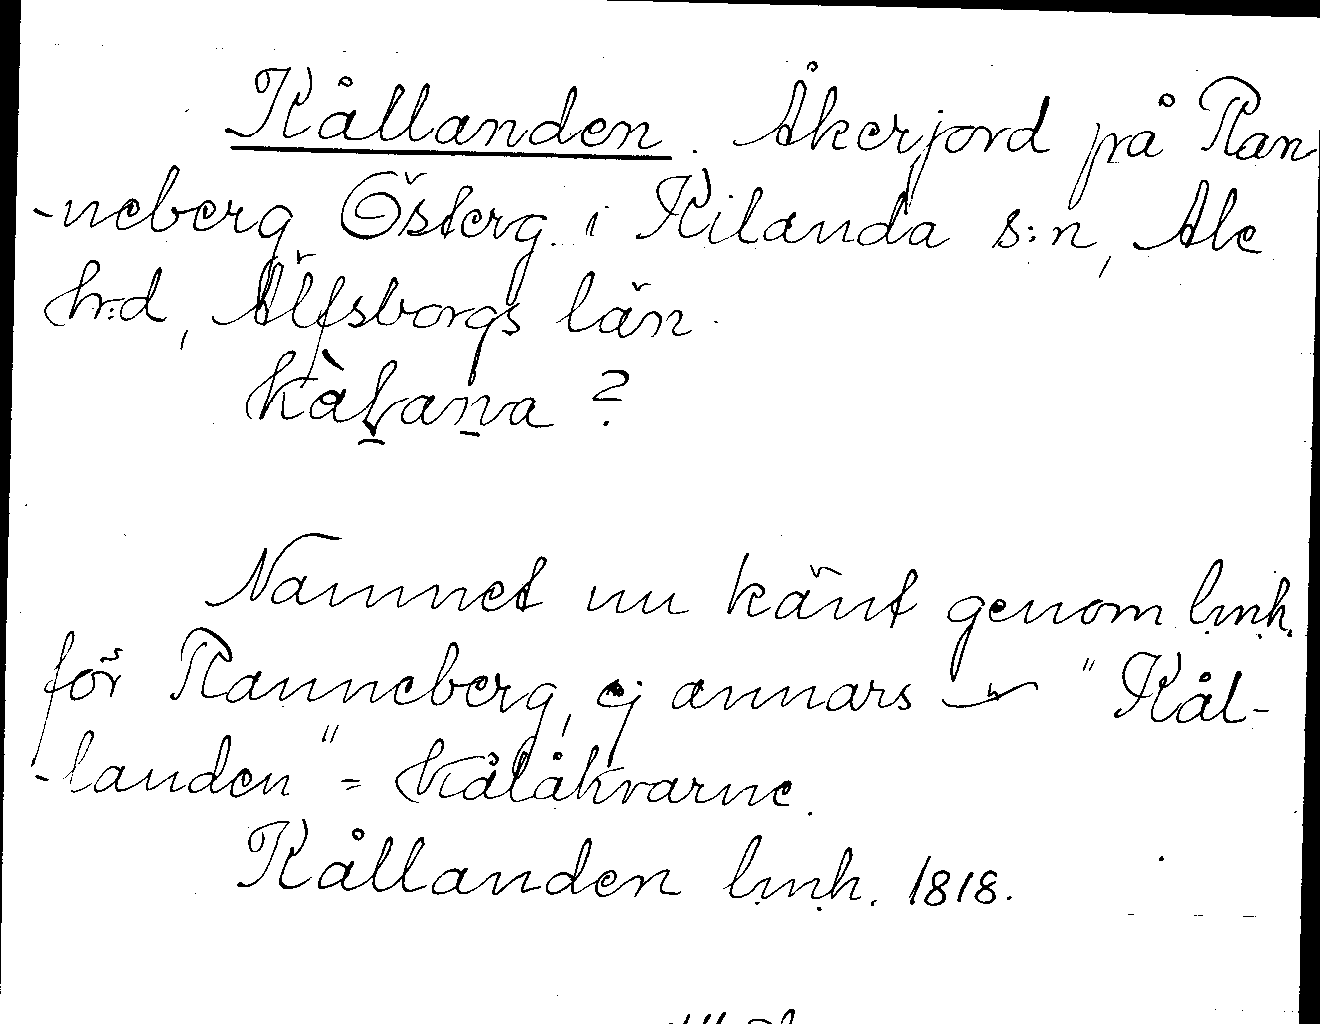 Kållanden. Åkerjord på Ran
-neberg Österg. i Kilanda s:n, Ale
h:d, Älfsborgs län.
?
Namnet nu känt genom l.m.h.
för Ranneberg, ej annars "Kål-
-landen" = Kålåkrarne.
Kållanden l.m.h. 1818.